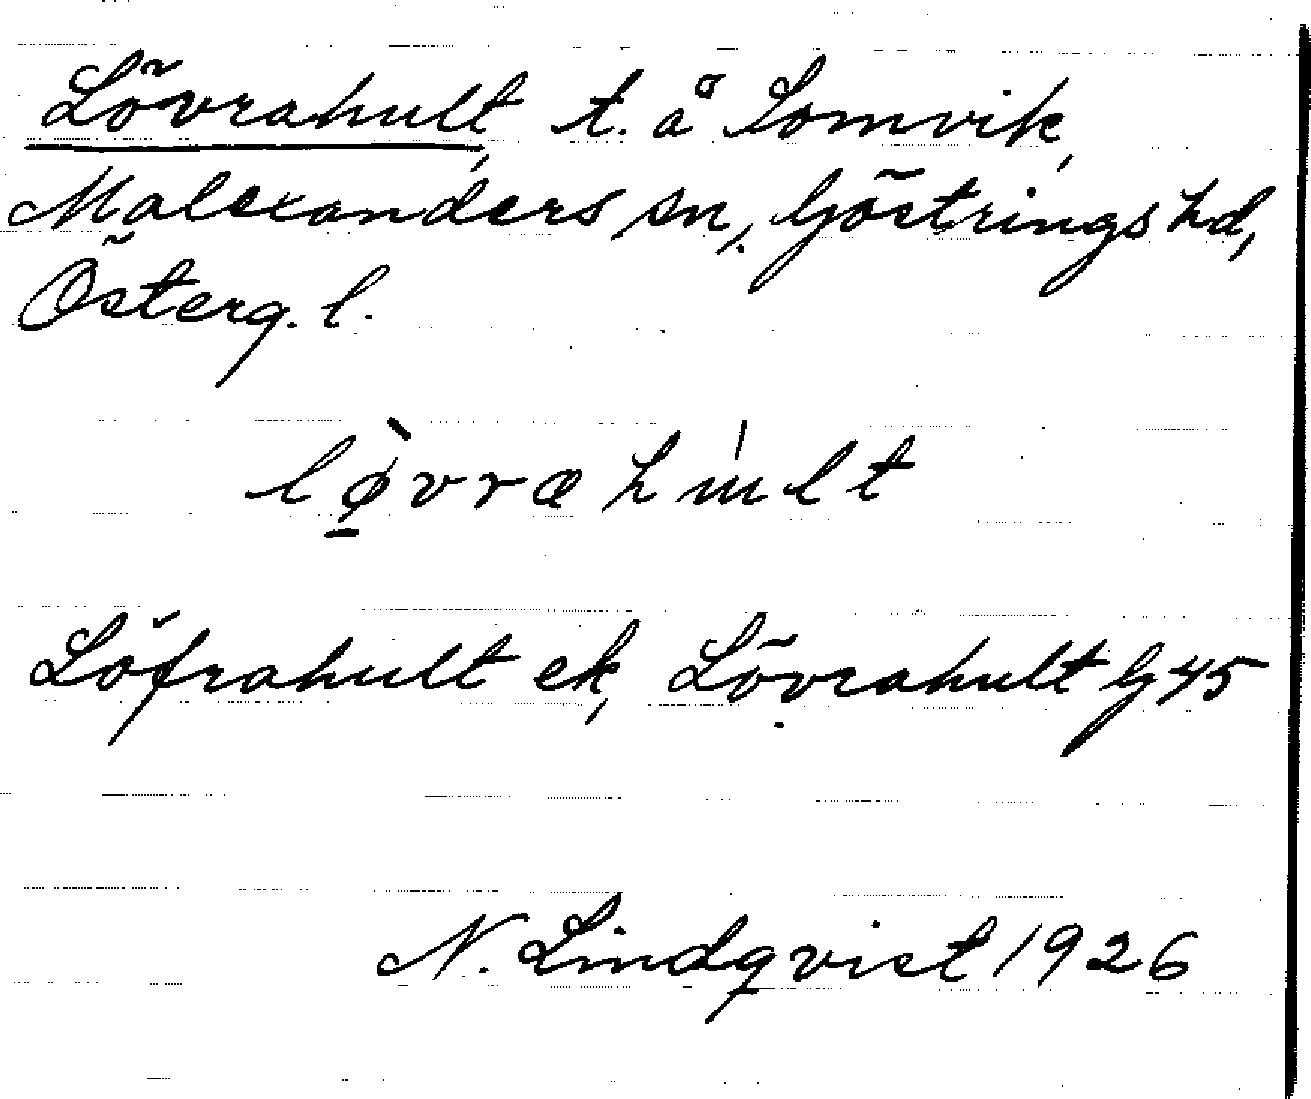 Lövrahult, t. å Somvik,
Malexanders sn, Göstrings hd,
Österg. l.
lø̠̀vrahúlt
Löfrahult ek, Lövrahult G 45
N. Lindqvist 1926